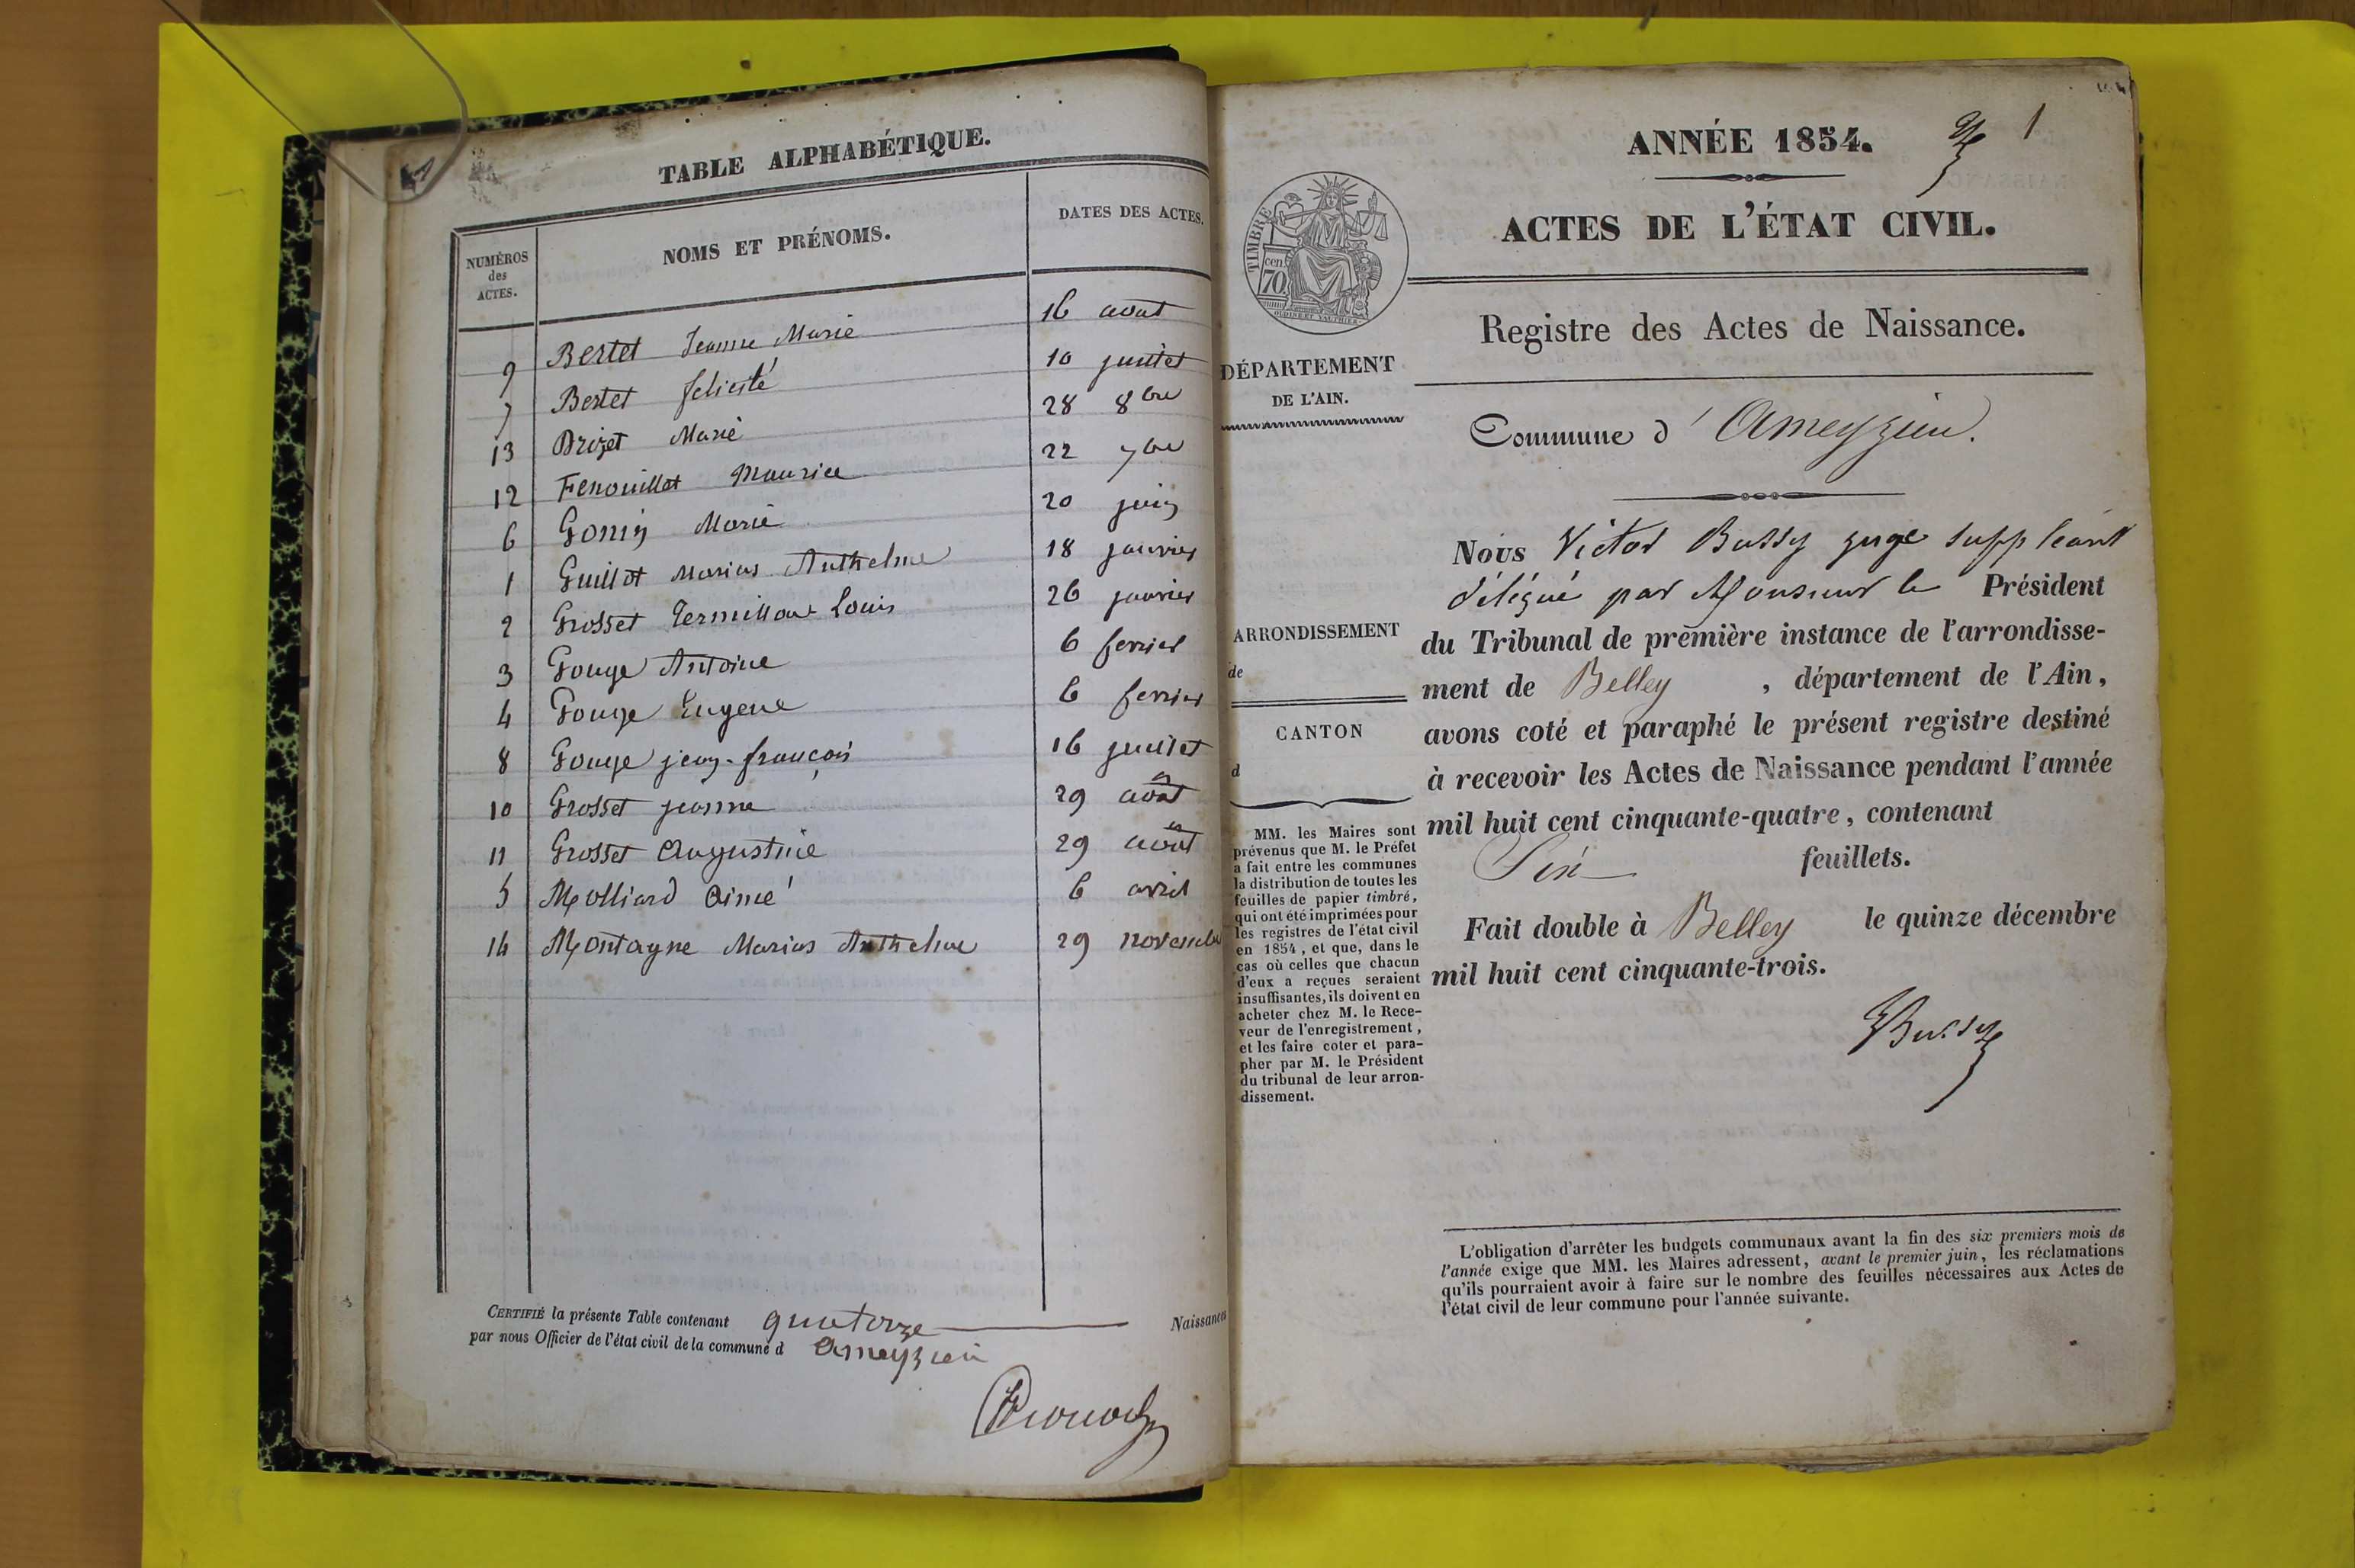 TABLE ALPHABÉTIQUE.
NUMÉROS des ACTES.
NOMS ET PRÉNOMS.
DATES DES ACTES.
9 Bertet Jeanne Marie 16 aout
7 Bertet félicité 10 juillet
13 Brizet Marie 28 8bre
12 Fenouillet Maurice 22 7bre
6 Gonin Marie 20 juin
1 Guillot Marius Anthelme 18 janvier
2 Grosset Louis 26 janvier
3 Gouge Antoine 6 fevrier
4 Gouge Eugene 6 fevrier
8 Gouge jean-françois 16 juillet
10 Grosset jeanne 29 août
11 Grosset Augustine 29 août
5 Molliard Aimé 6 avril
14 Montagne Marius Anthelme 29 novembre
CERTIFIÉ la présente Table contenant quatorze Naissances
par nous Officier de l'état civil de la commune d Ameyzieu
ANNÉE 1854.
1
ACTES DE L'ÉTAT CIVIL.
TIMBRE
70 cen.
OUDINÉ ET VAUTHIER
Registre des Actes de Naissance.
DÉPARTEMENT
DE L'AIN.
Commune d' Ameyzieu.
ARRONDISSEMENT
de
CANTON
d
MM. les Maires sont
prévenus que M. le Préfet
a fait entre les communes
la distribution de toutes les
feuilles de papier timbré,
qui ont été imprimées pour
les registres de l'état civil
en 1854, et que, dans le
cas où celles que chacun
d'eux a reçues seraient
insuffisantes, ils doivent en
acheter chez M. le Rece-
veur de l'enregistrement,
et les faire coter et para-
pher par M. le Président
du tribunal de leur arron-
dissement.
Nous Victor Bussy juge suppléant
délégué par Monsieur le Président
du Tribunal de première instance de l'arrondisse-
ment de Belley, département de l'Ain,
avons coté et paraphé le présent registre destiné
à recevoir les Actes de Naissance pendant l'année
mil huit cent cinquante-quatre, contenant
Six feuillets.
Fait double à Belley le quinze décembre
mil huit cent cinquante-trois.
Bussy
L'obligation d'arrêter les budgets communaux avant la fin des six premiers mois de
l'année exige que MM. les Maires adressent, avant le premier juin, les réclamations
qu'ils pourraient avoir à faire sur le nombre des feuilles nécessaires aux Actes de
l'état civil de leur commune pour l'année suivante.